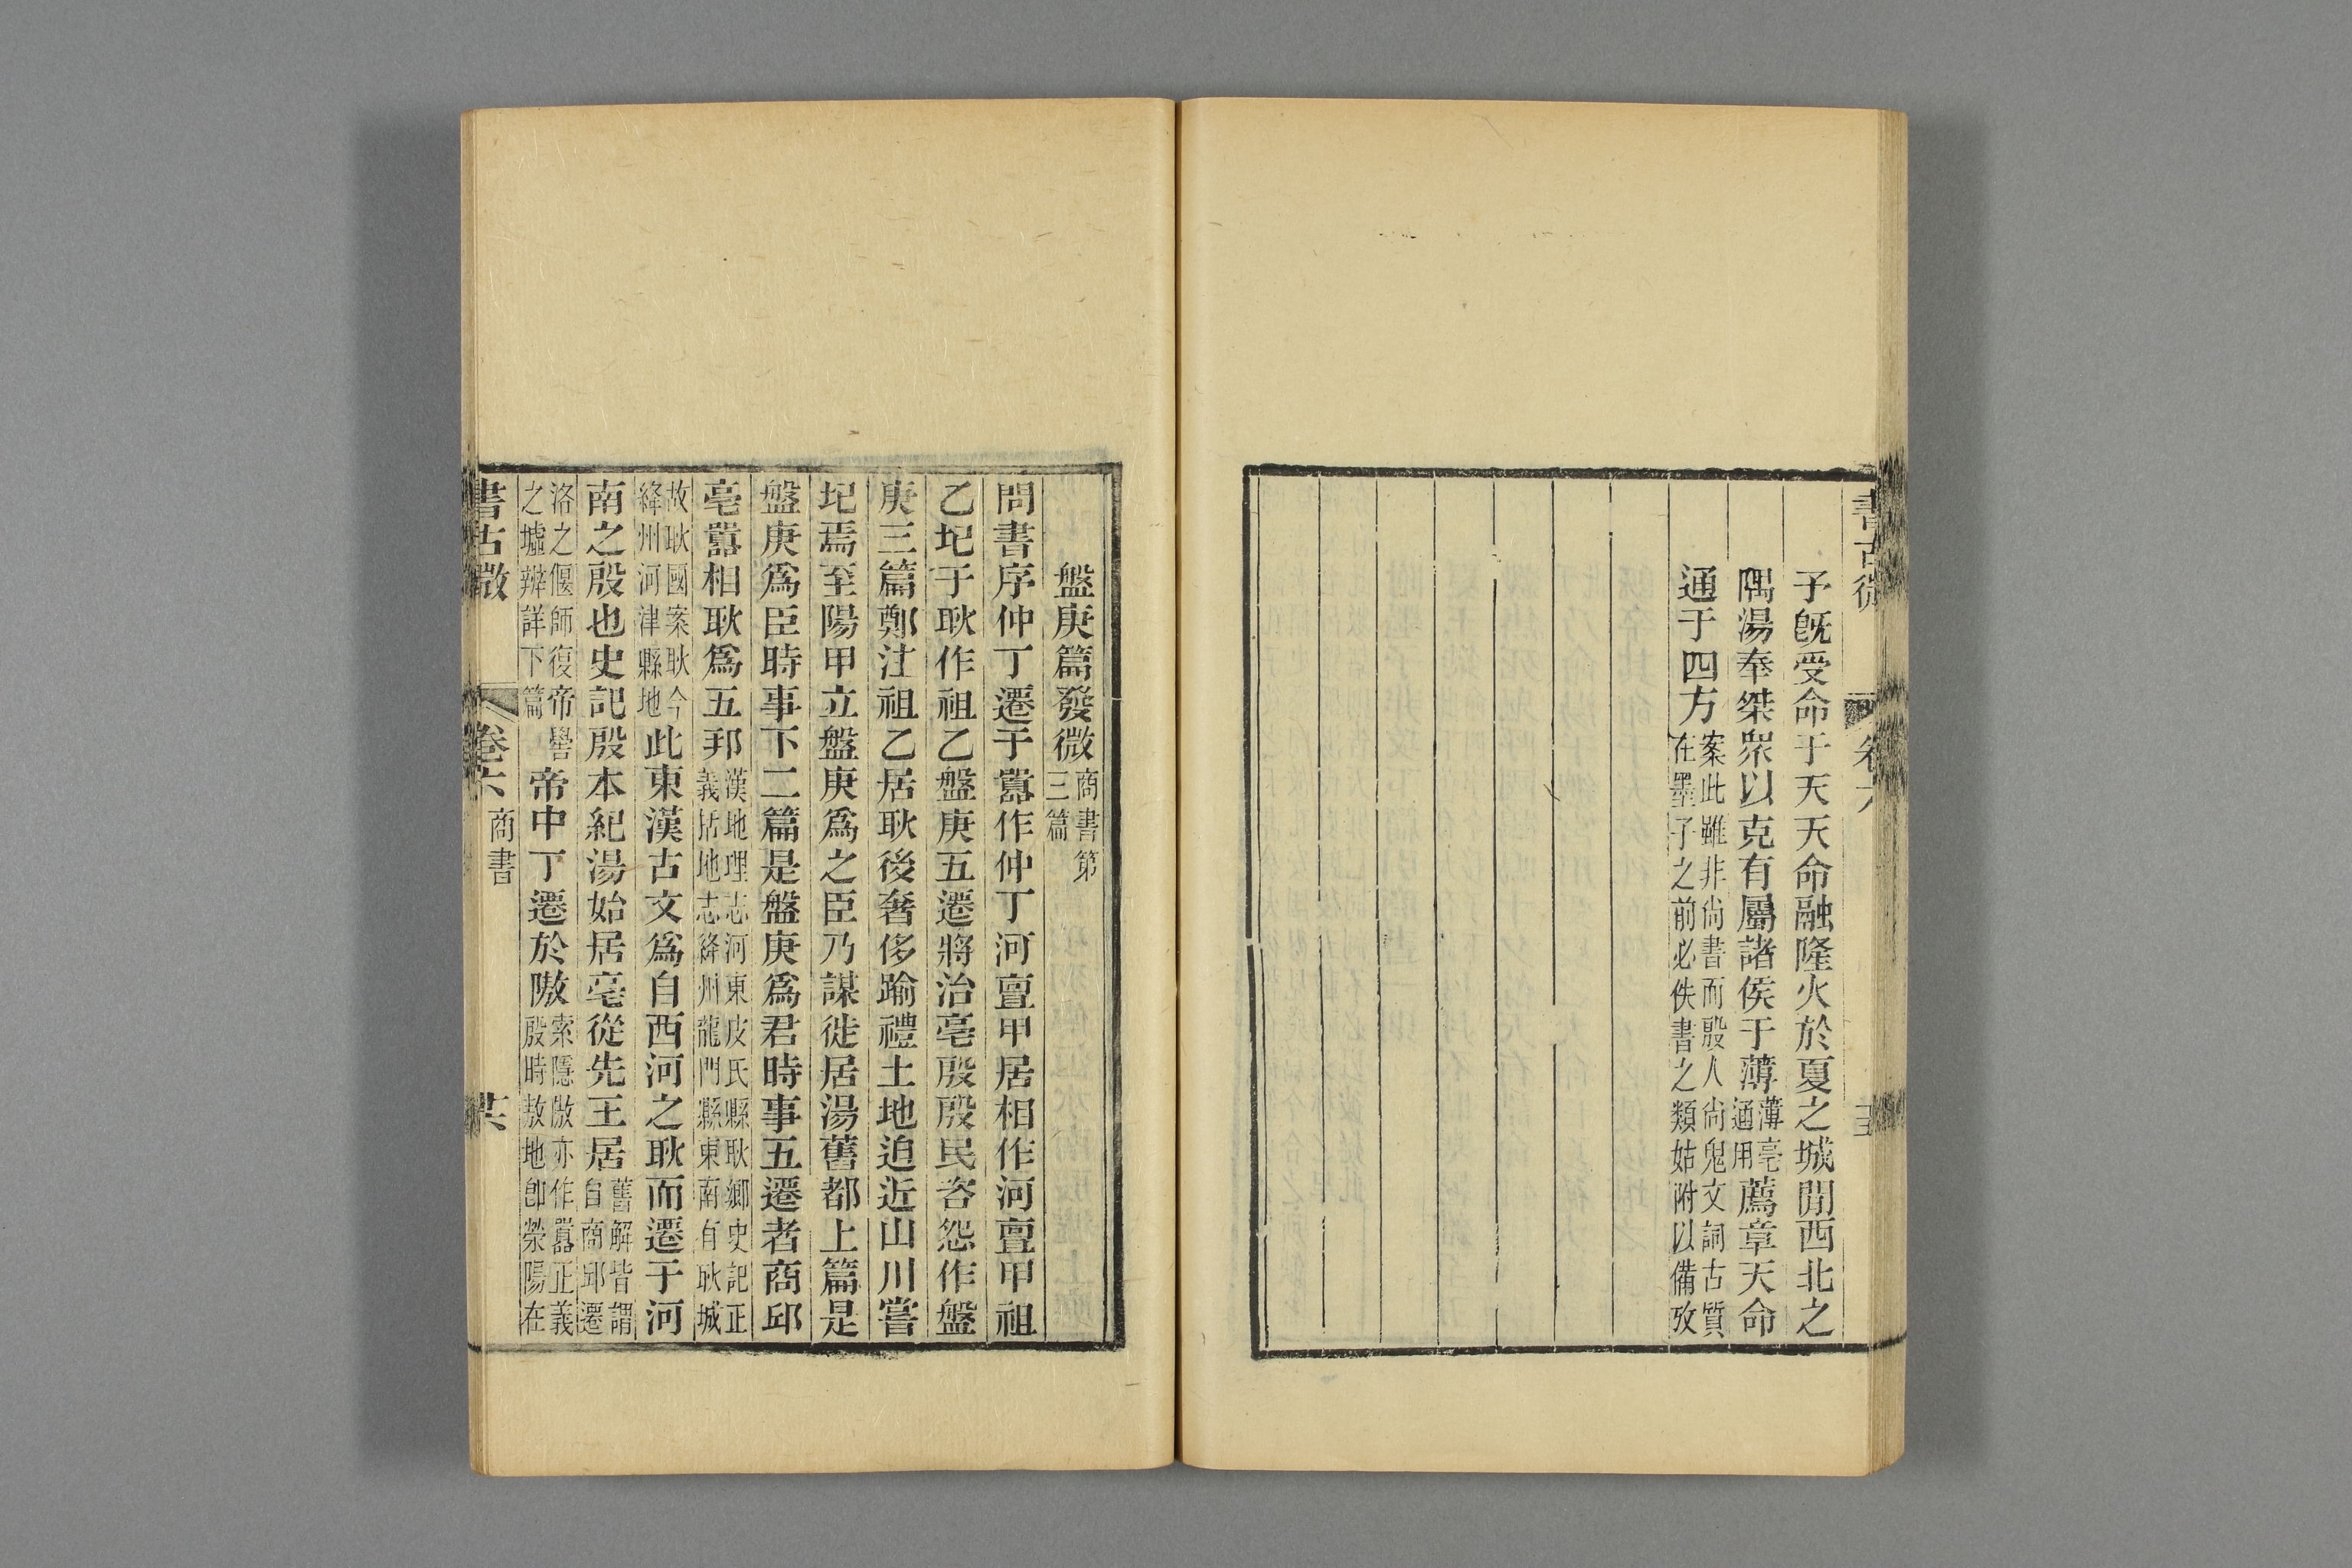 書古微
卷六
予旣受命于天天命融隆火於夏之城閒西北之
隅湯奉桀衆以克有屬諸侯于薄薄亳通用薦章天命
通于四方案此雖非尙書而殷人尙鬼文詞古質在墨子之前必佚書之類姑附以備攷
盤庚篇發微商書第三篇
問書序仲丁遷于嚻作仲丁河亶甲居相作河亶甲祖
乙圮于耿作祖乙盤庚五遷將治亳殷殷民咨怨作盤
庚三篇鄭注祖乙居耿後奢侈踰禮土地迫近山川嘗
圮焉至陽甲立盤庚爲之臣乃謀徙居湯舊都上篇是
盤庚爲臣時事下二篇是盤庚爲君時事五遷者商邱
亳嚻相耿爲五邦漢地理志河東皮氏縣耿鄉史記正義括地志絳州龍門縣東南有耿城
故耿國案耿今絳州河津縣地此東漢古文爲自西河之耿而遷于河
南之殷也史記殷本紀湯始居亳從先王居舊解皆謂自商邱遷
洛之偃師復帝嚳之墟辨詳下篇帝中丁遷於隞索隱隞亦作嚻正義殷時敖地卽滎陽在
書古微
卷六
商書